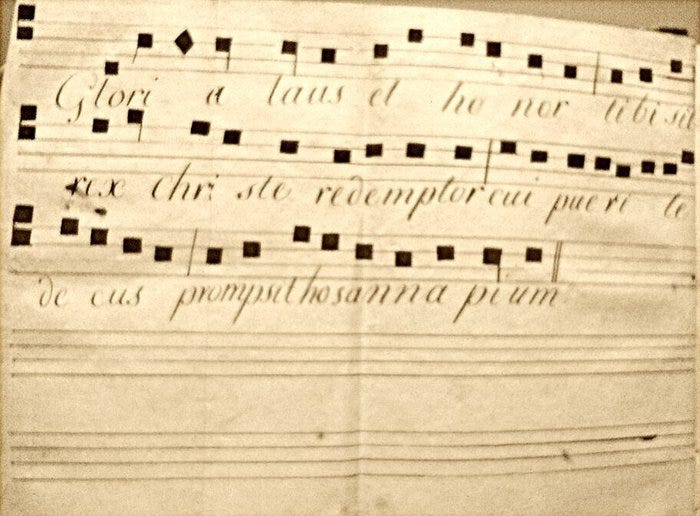 Glori a laus et ho nor tibi sit
rex chri ste redemptor cui pueri le
de cus prompsit hosanna pium